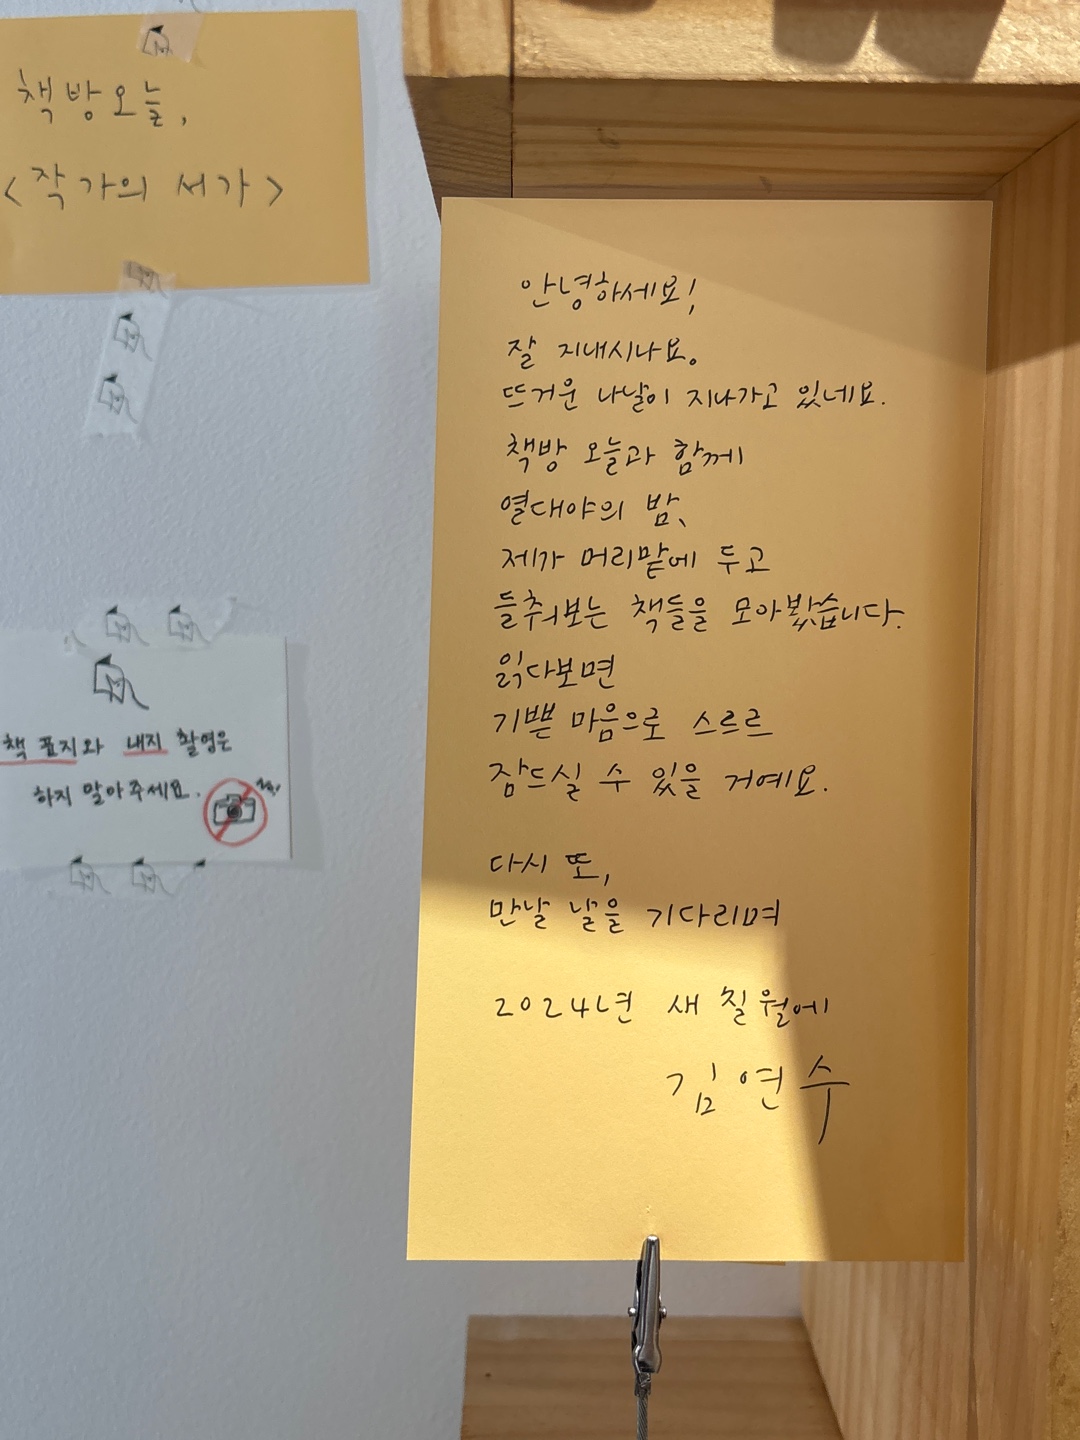 책방오늘,
<작가의 서가>
안녕하세요!
잘 지내시나요.
뜨거운 나날이 지나가고 있네요.
책방 오늘과 함께
열대야의 밤,
제가 머리맡에 두고
들춰보는 책들을 모아봤습니다.
읽다보면
기쁜 마음으로 스르르
잠드실 수 있을 거예요.
다시 또,
만날 날을 기다리며
2024년 새 칠월에
김연수
책 표지와 내지 촬영은
하지 말아주세요.